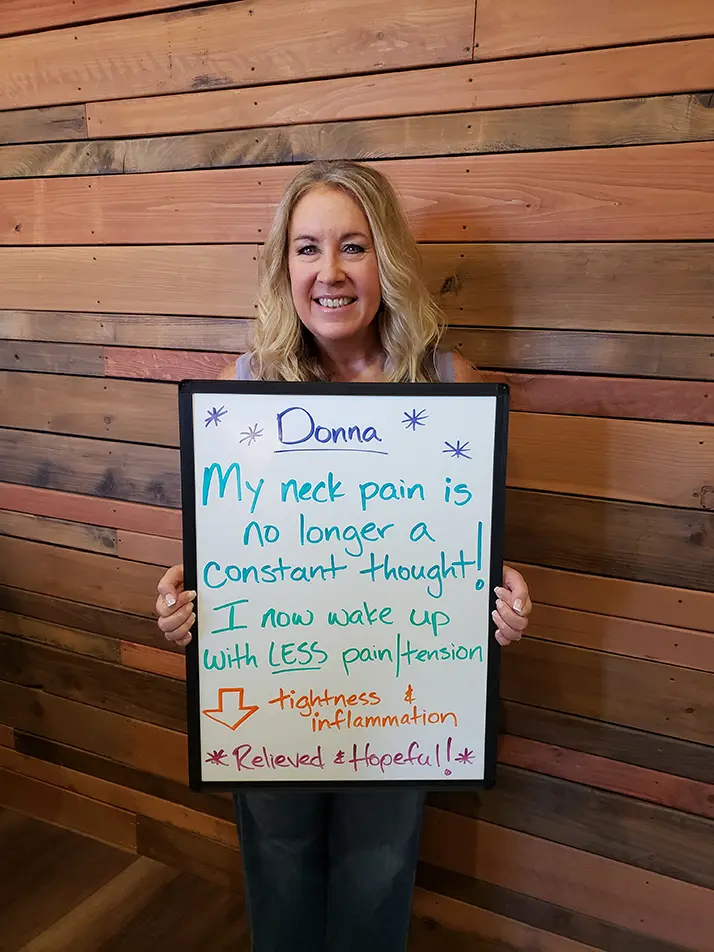 Donna
My neck pain is
no longer a
constant thought!
I now wake up
with LESS pain/tension
tightness &
inflammation
* Relieved & Hopeful! *